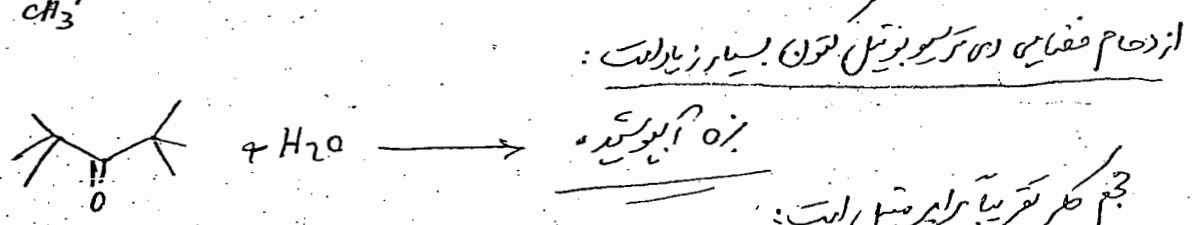 CH3
ازدحام فضایی دی ترسیوبوتیل کتون بسیار زیاد است:
+ H2O ⟶
O
حجم کلر تقریباً برابر متیل است: